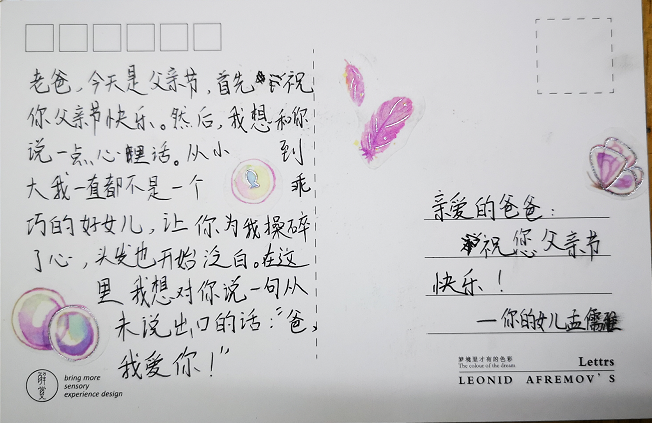 老爸，今天是父亲节，首先祝
你父亲节快乐。然后，我想和你
说一点心里话。从小到
大我一直都不是一个乖
巧的好女儿，让你为我操碎
了心，头发也开始泛白。在这
里我想对你说一句从
未说出口的话：“爸，
我爱你！”
亲爱的爸爸：
祝您父亲节
快乐！
—你的女儿孟儒雅
解赏
bring more
sensory
experience design
梦境里才有的色彩
The colour of the dream
Lettrs
LEONID AFREMOV'S